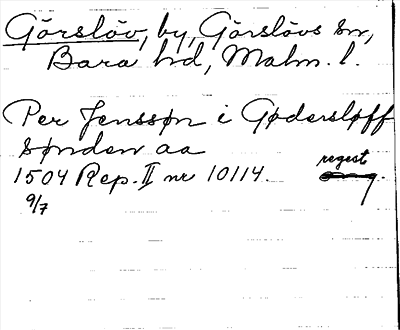 Görslöv, by, Görslövs sn,
Bara hd, Malm. l.
Per Jenssøn i Gødersløff
sønden aa
1504 Rep. II nr 10114. regest
9/7